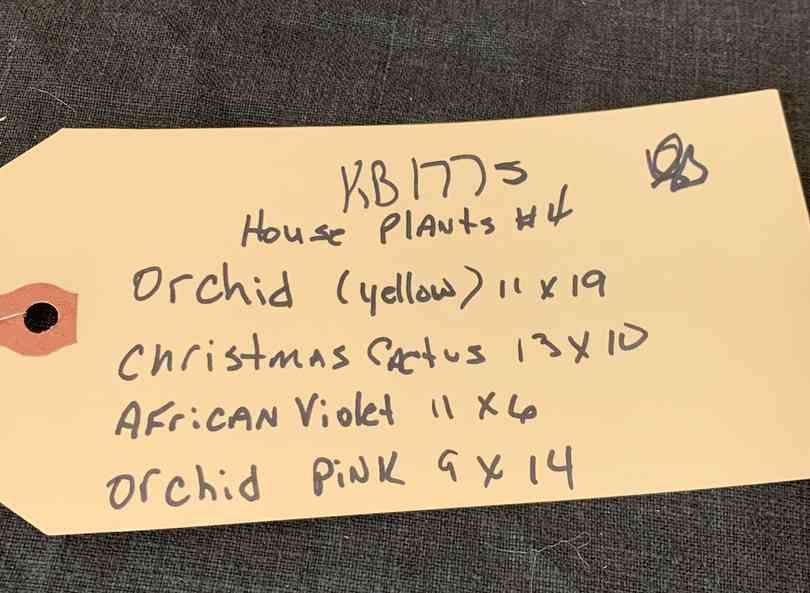 KB1775
House Plants #4
Orchid (yellow) 11 x 19
Christmas Cactus 13 x 10
African Violet 11 x 6
Orchid Pink 9 x 14